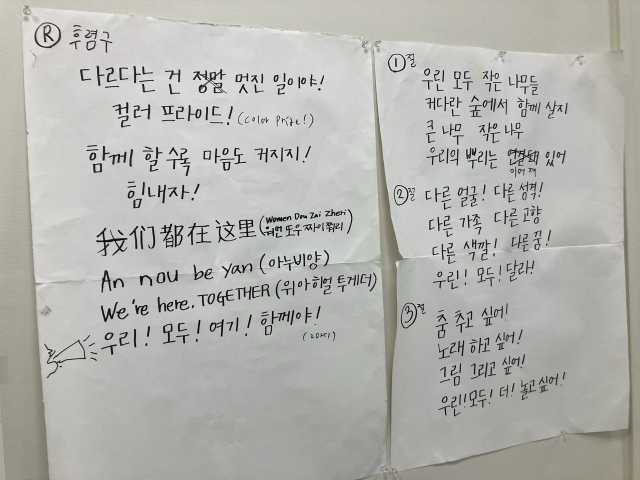 R 후렴구
다르다는 건 정말 멋진 일이야!
컬러 프라이드! (Color Pride!)
함께 할수록 마음도 커지지!
힘내자!
我们都在这里 (Women Dou Zai Zheli 워먼 또우 짜이 쩌리)
An nou be yan (아누비양)
We're here. TOGETHER (위 아 히얼 투게더)
우리! 모두! 여기! 함께야!
1절
우린 모두 작은 나무들
커다란 숲에서 함께 살지
큰 나무 작은 나무
우리의 뿌리는 있어
이어져
2절 다른 얼굴! 다른 성격!
다른 가족 다른 고향
다른 색깔! 다른 꿈!
우린! 모두! 달라!
3절
춤 추고 싶어!
노래 하고 싶어!
그림 그리고 싶어!
우린! 모두! 더! 놀고 싶어!